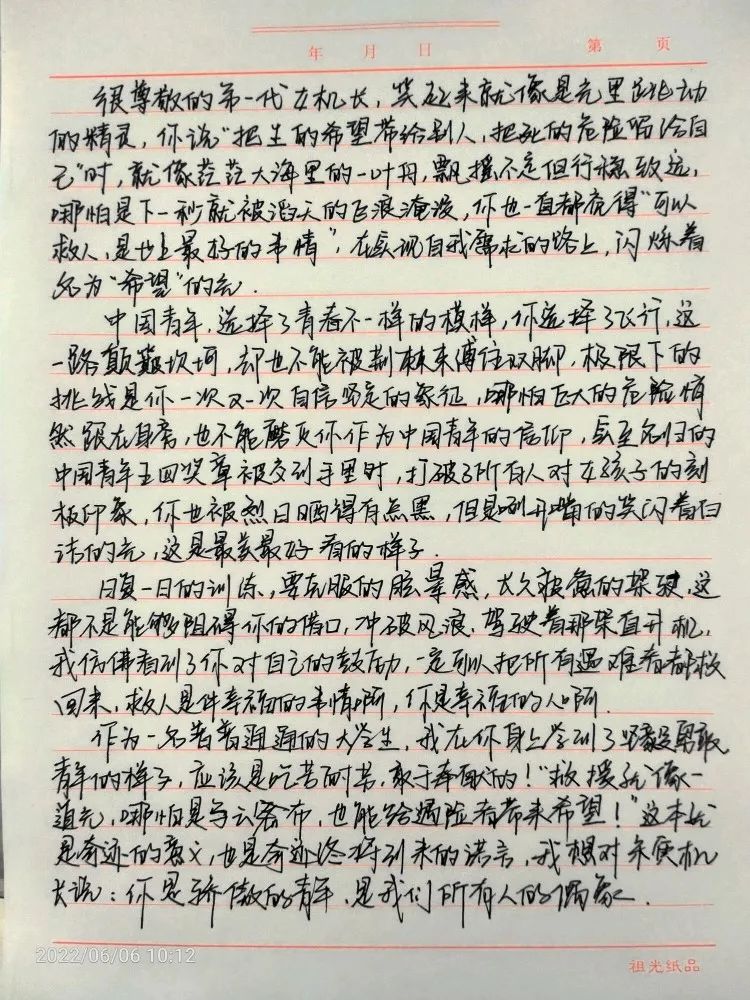 年 月 日 第 页
很尊敬的第一代女机长，笑起来就像是光里跳动
的精灵，你说“把生的希望带给别人，把死的危险留给自
己”时，就像茫茫大海里的一叶舟，飘摇不定但行稳致远，
哪怕是下一秒就被滔天的飞浪淹没，你也一直都觉得“可以
救人，是世上最好的事情”，在实现自我需求的路上，闪烁着
名为“希望”的光．
中国青年，选择了青春不一样的模样，你选择了飞行，这
一路颠簸坎坷，却也不能被荆棘束缚住双脚，极限下的
挑战是你一次又一次自信坚定的象征，哪怕巨大的危险悄
然跟在身旁，也不能磨灭你作为中国青年的信仰，实至名归的
中国青年五四奖章被交到手里时，打破了所有人对女孩子的刻
板印象，你也被烈日晒得有点黑，但是咧开嘴的笑闪着白
洁的光，这是最美最好看的样子．
日复一日的训练，要克服的眩晕感，太久疲惫的驾驶，这
都不是能够阻碍你的借口，冲破风浪，驾驶着那架直升机，
我仿佛看到了你对自己的鼓励，一定可以把所有遇难者都救
回来，救人是件幸福的事情啊，你是幸福的人啊．
作为一名普普通通的大学生，我在你身上学到了坚毅勇敢
青年的样子，应该是吃苦耐劳，敢于奉献的！“救援就像一
道光，哪怕是乌云密布，也能给遇险者带来希望！”这本就
是奇迹的意义，也是奇迹终将到来的诺言，我想对宋寅机
长说：你是骄傲的青年，是我们所有人的偶象．
2022/06/06 10:12
祖光纸品